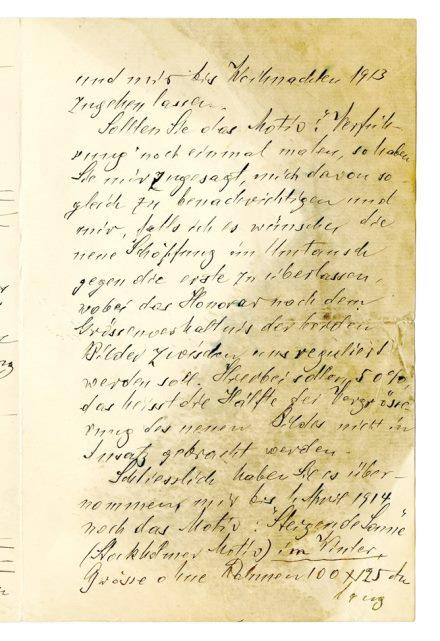 und mir bis Weihnachten 1913
zugehen lassen.
Sollten Sie das Motiv: "Verfüh-
rung" noch einmal malen, so haben
Sie mir zugesagt, mich davon so-
gleich zu benachrichtigen und
mir, falls ich es wünsche die
neue Schöpfung im Umtausch
gegen die erste zu überlassen,
wobei das Honorar nach dem
Grössenverhältnis der beiden
Bilder zwischen uns reguliert
werden soll. Hierbei sollen 50%,
das heisst die Hälfte der Vergrösse
rung des neuen Bildes nicht in
Ansatz gebracht werden.
Schliesslich haben Sie es über-
nommen, mir bis 1 April 1914
noch das Motiv: "Steigende Sonne"
(Stockholmer Motiv) im Winter,
Grösse ohne Rahmen 100 x 125 cm